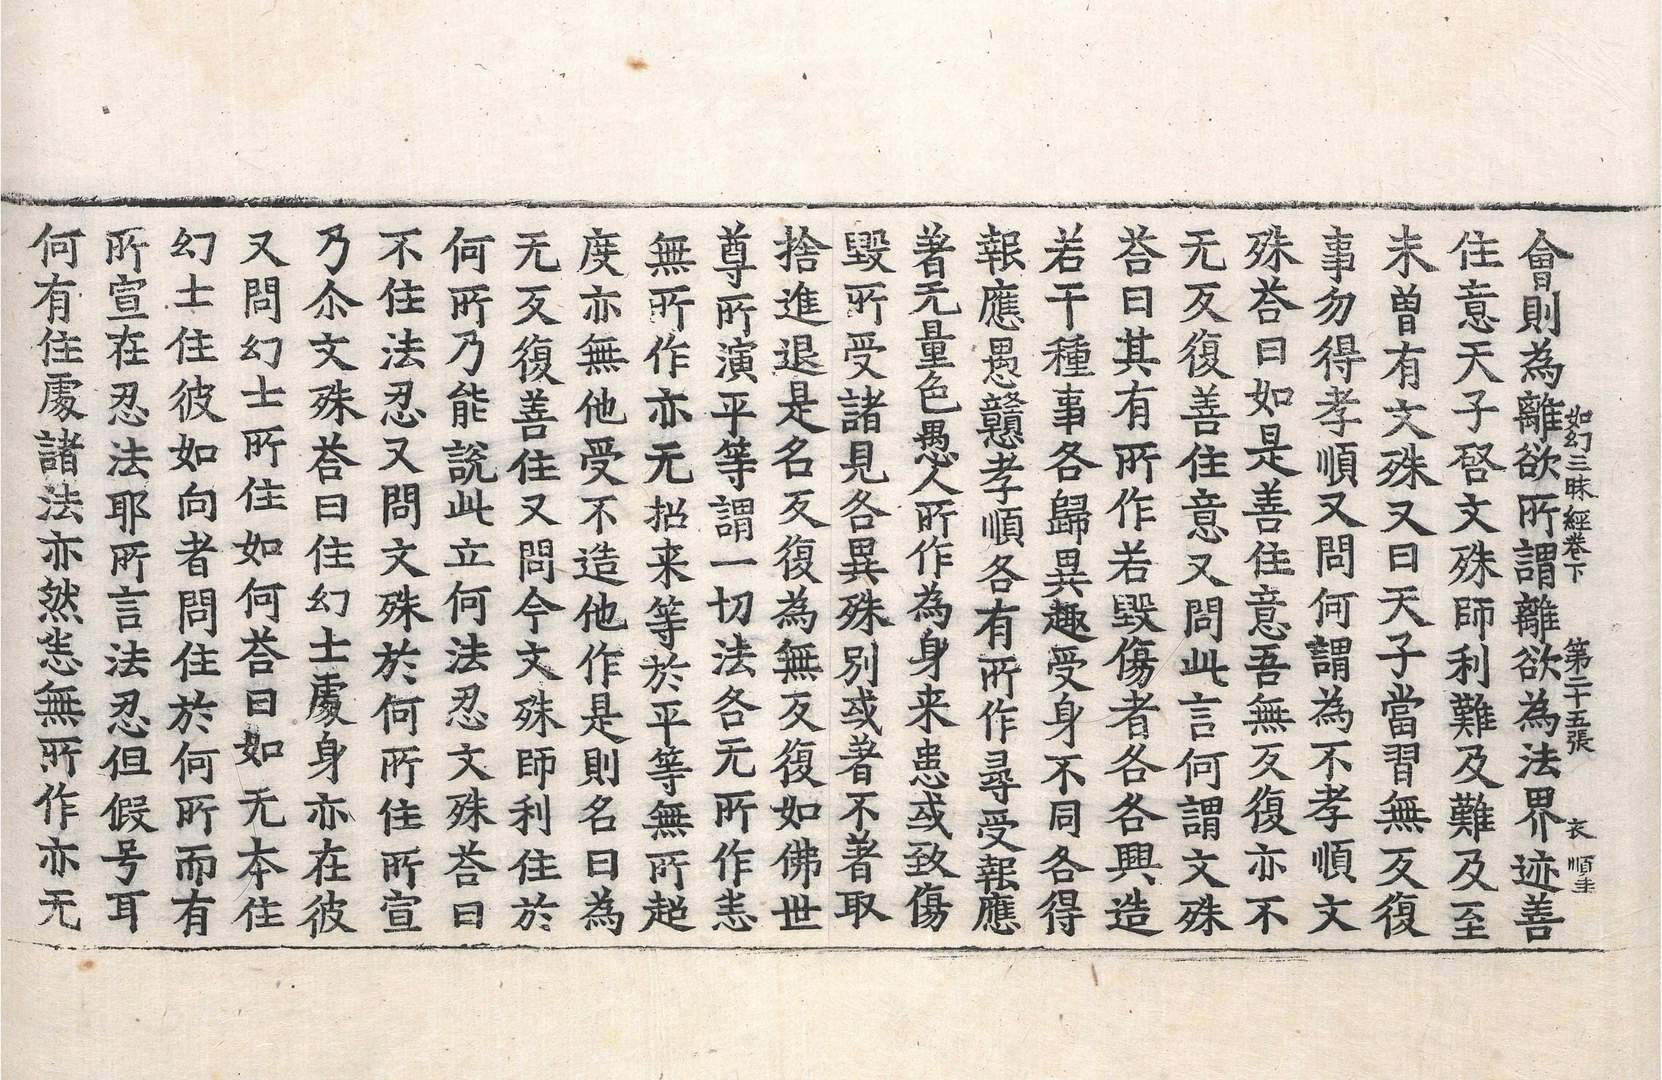 如幻三昧經卷下　第二十五張　衣　順圭
會則為離欲所謂離欲為法界迹善
住意天子啓文殊師利難及難及至
未曽有文殊又曰天子當習無反復
事勿得孝順又問何謂為不孝順文
殊荅曰如是善住意吾無反復亦不
无反復善住意又問此言何謂文殊
荅曰其有所作若毀傷者各各興造
若干種事各歸異趣受身不同各得
報應愚戇孝順各有所作尋受報應
著无量色愚人所作為身来患或致傷
毀所受諸見各異殊別或著不著取
捨進退是名反復為無反復如佛世
尊所演平等謂一切法各无所作恚
無所作亦无招来等於平等無所超
度亦無他受不造他作是則名曰為
无反復善住又問今文殊師利住於
何所乃能說此立何法忍文殊荅曰
不住法忍又問文殊於何所住所宣
乃尒文殊荅曰住幻士處身亦在彼
又問幻士所住如何荅曰如无本住
幻士住彼如向者問住於何所而有
所宣在忍法耶所言法忍但假号耳
何有住處諸法亦然恚無所作亦无